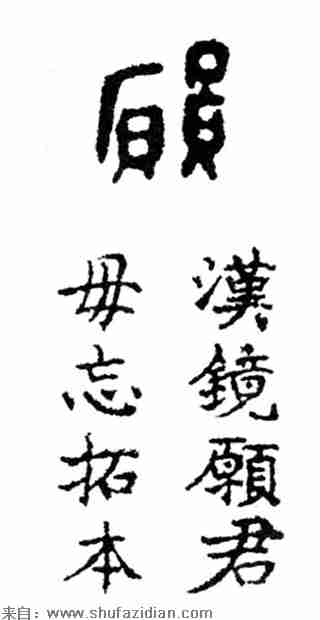 願
漢鏡願君
毋忘拓本
来自：www.shufazidian.com